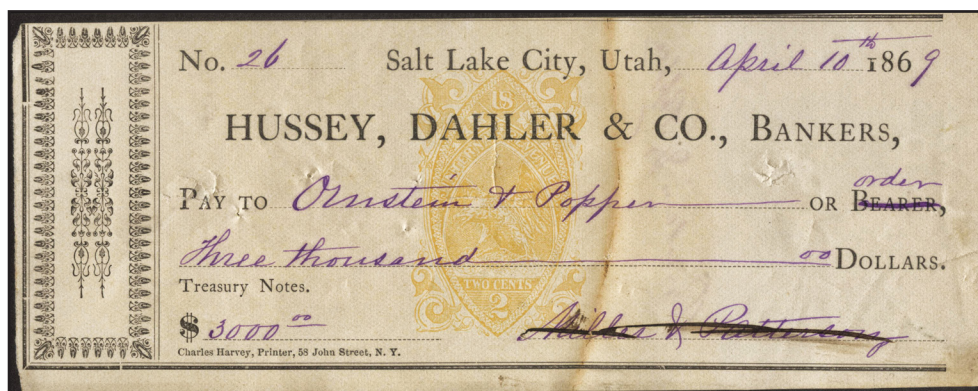 No. 26 Salt Lake City, Utah, April 10th 1869
HUSSEY, DAHLER & CO., BANKERS,
PAY TO Ornstein & Popper OR BEARER, order
Three thousand 00 DOLLARS.
Treasury Notes.
$ 3000 00
Miller & Patterson
Charles Harvey, Printer, 58 John Street, N. Y.
US
TWO CENTS
2